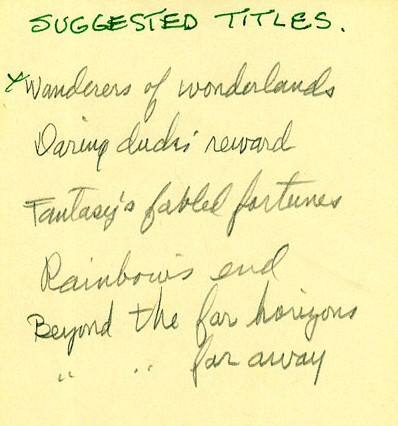 SUGGESTED TITLES.
x Wanderers of wonderlands
Daring ducks' reward
Fantasy's fabled fortunes
Rainbow's end
Beyond the far horizons
" " far away